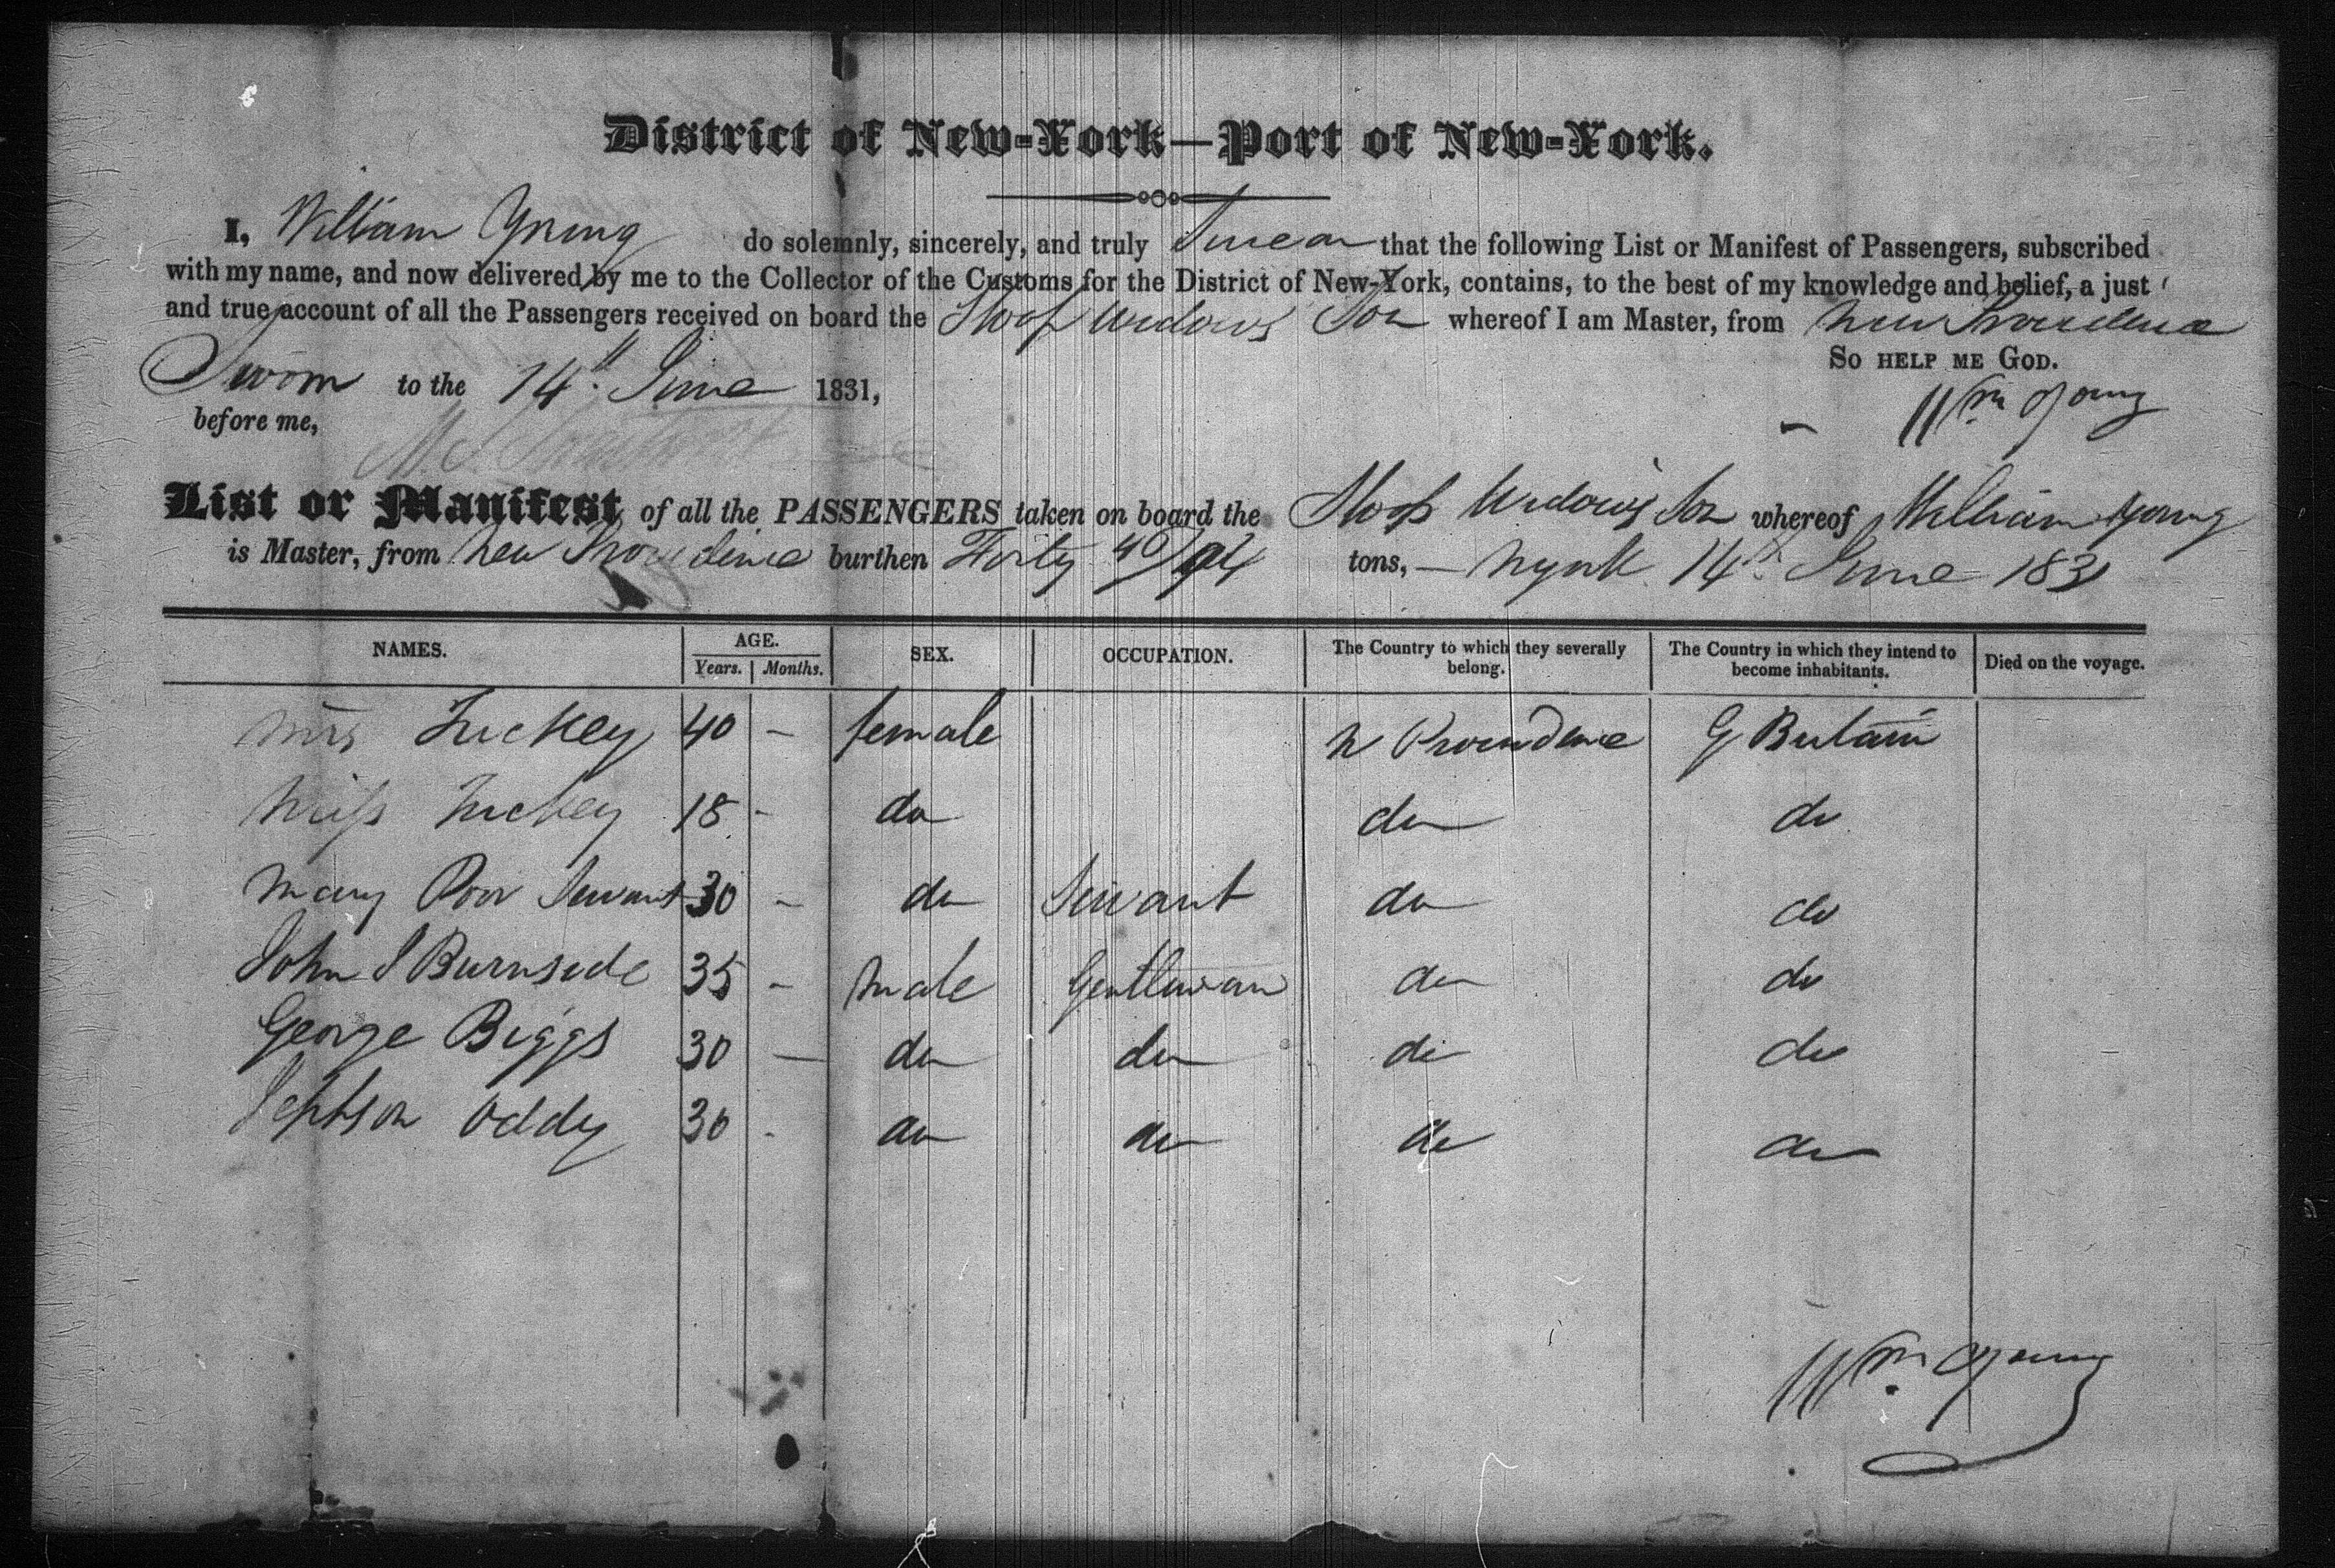 District of New-York—Port of New-York.
I, William Young do solemnly, sincerely, and truly Swear that the following List or Manifest of Passengers, subscribed
with my name, and now delivered by me to the Collector of the Customs for the District of New-York, contains, to the best of my knowledge and belief, a just
and true account of all the Passengers received on board the Sloop Widows Son whereof I am Master, from New Providence
So help me God.
Sworn to the 14th June 1831,
Wm Young
before me,
List or Manifest of all the PASSENGERS taken on board the Sloop Widow's Son whereof William Young
is Master, from New Providence burthen Forty 40/94 tons, — NYork 14th June 1831
NAMES. AGE. Years. Months. SEX. OCCUPATION. The Country to which they severally belong. The Country in which they intend to become inhabitants. Died on the voyage.
Mrs Tuckey 40 - female N Providence G Britain
Miss Tuckey 18 - do do do
Mary Poor Servant 30 - do Servant do do
John S Burnside 35 - Male Gentleman do do
George Biggs 30 — do do do do
Oddy 30 - do do do do
Wm Young